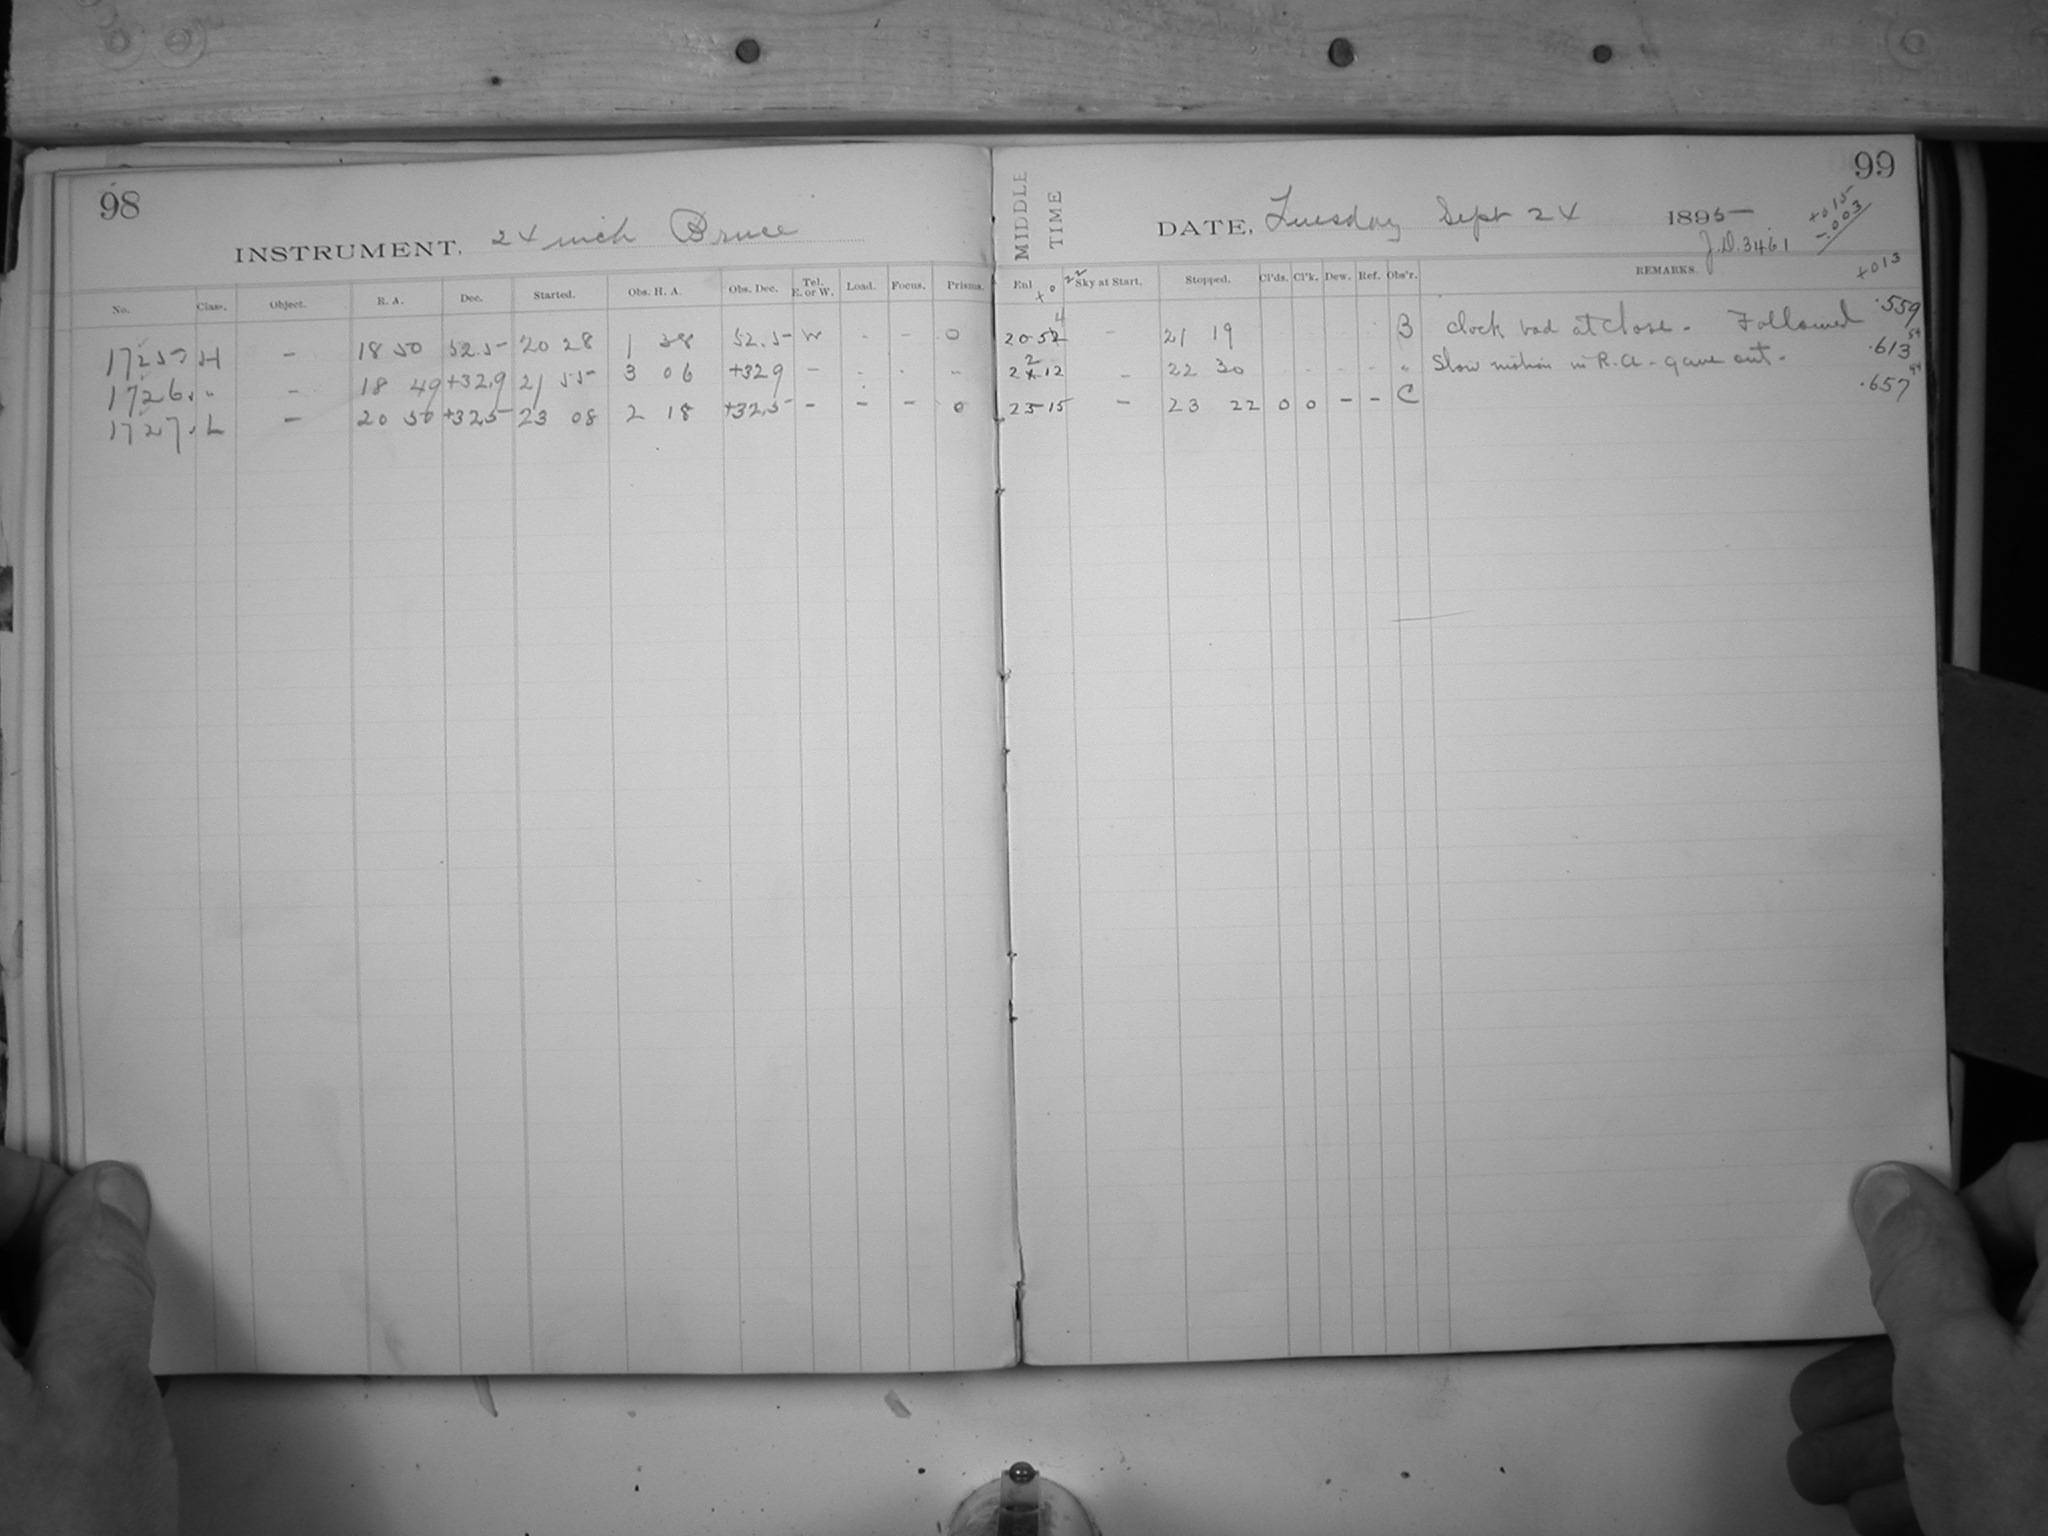 98
INSTRUMENT, 24 inch Bruce
No. Class. Object. R. A. Dec. Started. Obs. H. A. Obs. Dec. Tel. E. or W. Load. Focus. Prisms.
1725 H - 18 50 52.5 20 28 1 38 52.5 W - - 0
1726 " - 18 49 +32.9 21 55 3 06 +329 - . . "
1727 L - 20 50 +325 23 08 2 18 +32.5 - - - 0
MIDDLE TIME
99
DATE, Tuesday Sept 24 1895
+015
-.003
J.D. 3461
+013
Sky at Start. Stopped. Cl'ds. Cl'k. Dew. Ref. Obs'r. REMARKS.
20 52 - 21 19 B Clock bad at close - Followed .559
12 - 22 30 - - - - " Slow motion in R.A. - gave out - .613
23 15 - 23 22 0 0 - - C .657